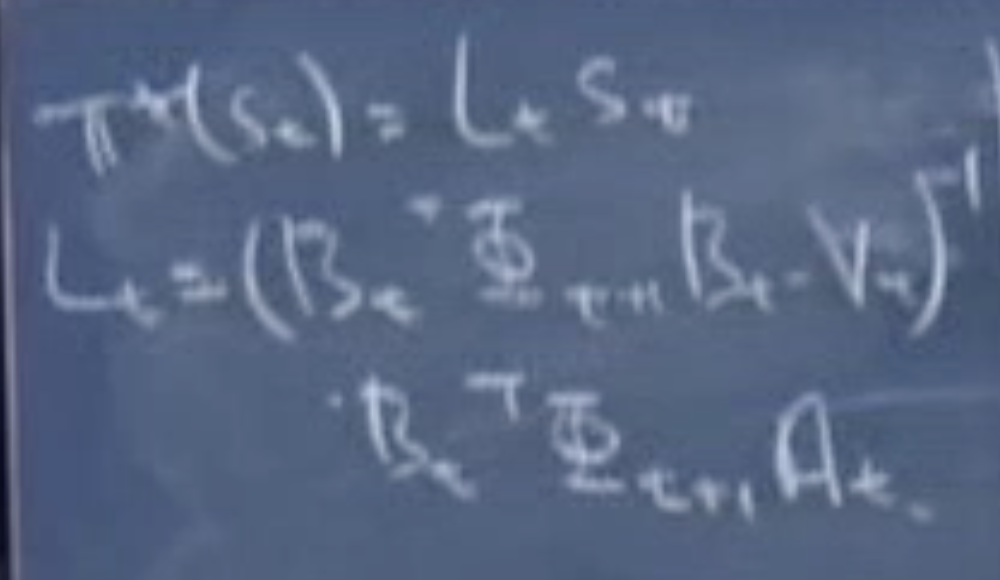 π*(s_t) = L_t s_t
L_t = (B_t^T Φ_{t+1} B_t - V_t)^{-1}
· B_t^T Φ_{t+1} A_t.